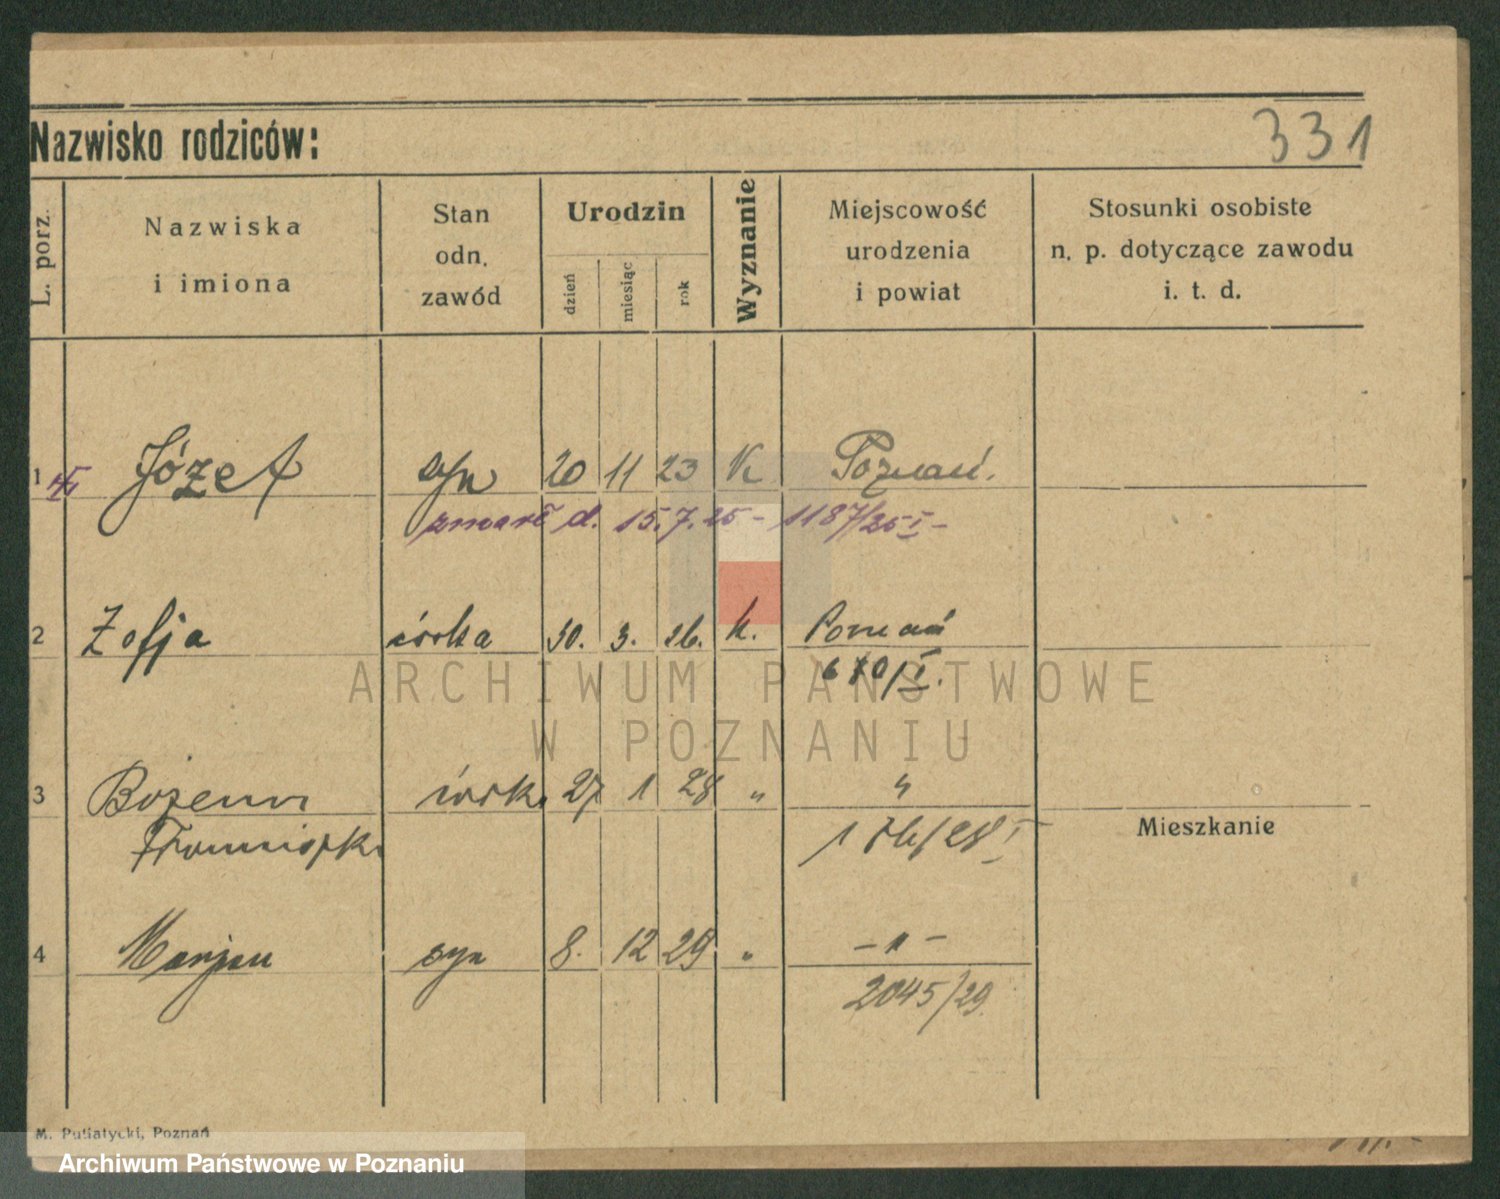 331
Nazwisko rodziców:
L. porz.
Nazwiska
i imiona
Stan
odn.
zawód
Urodzin
dzień
miesiąc
rok
Wyznanie
Miejscowość
urodzenia
i powiat
Stosunki osobiste
n. p. dotyczące zawodu
i. t. d.
1 Józef syn 20 11 23 K Poznań.
zmarł d. 15.7.25 - 1187/25 I -
2 Zofja córka 30. 3. 26. k. Poznań
670/I.
3 Bożena córka 27 1 28 " "
Franciszka 176/28 I
Mieszkanie
4 Marjan syn 8. 12 29 " - " -
2045/29.
M. Putiatycki, Poznań
ARCHIWUM PAŃSTWOWE
W POZNANIU
Archiwum Państwowe w Poznaniu